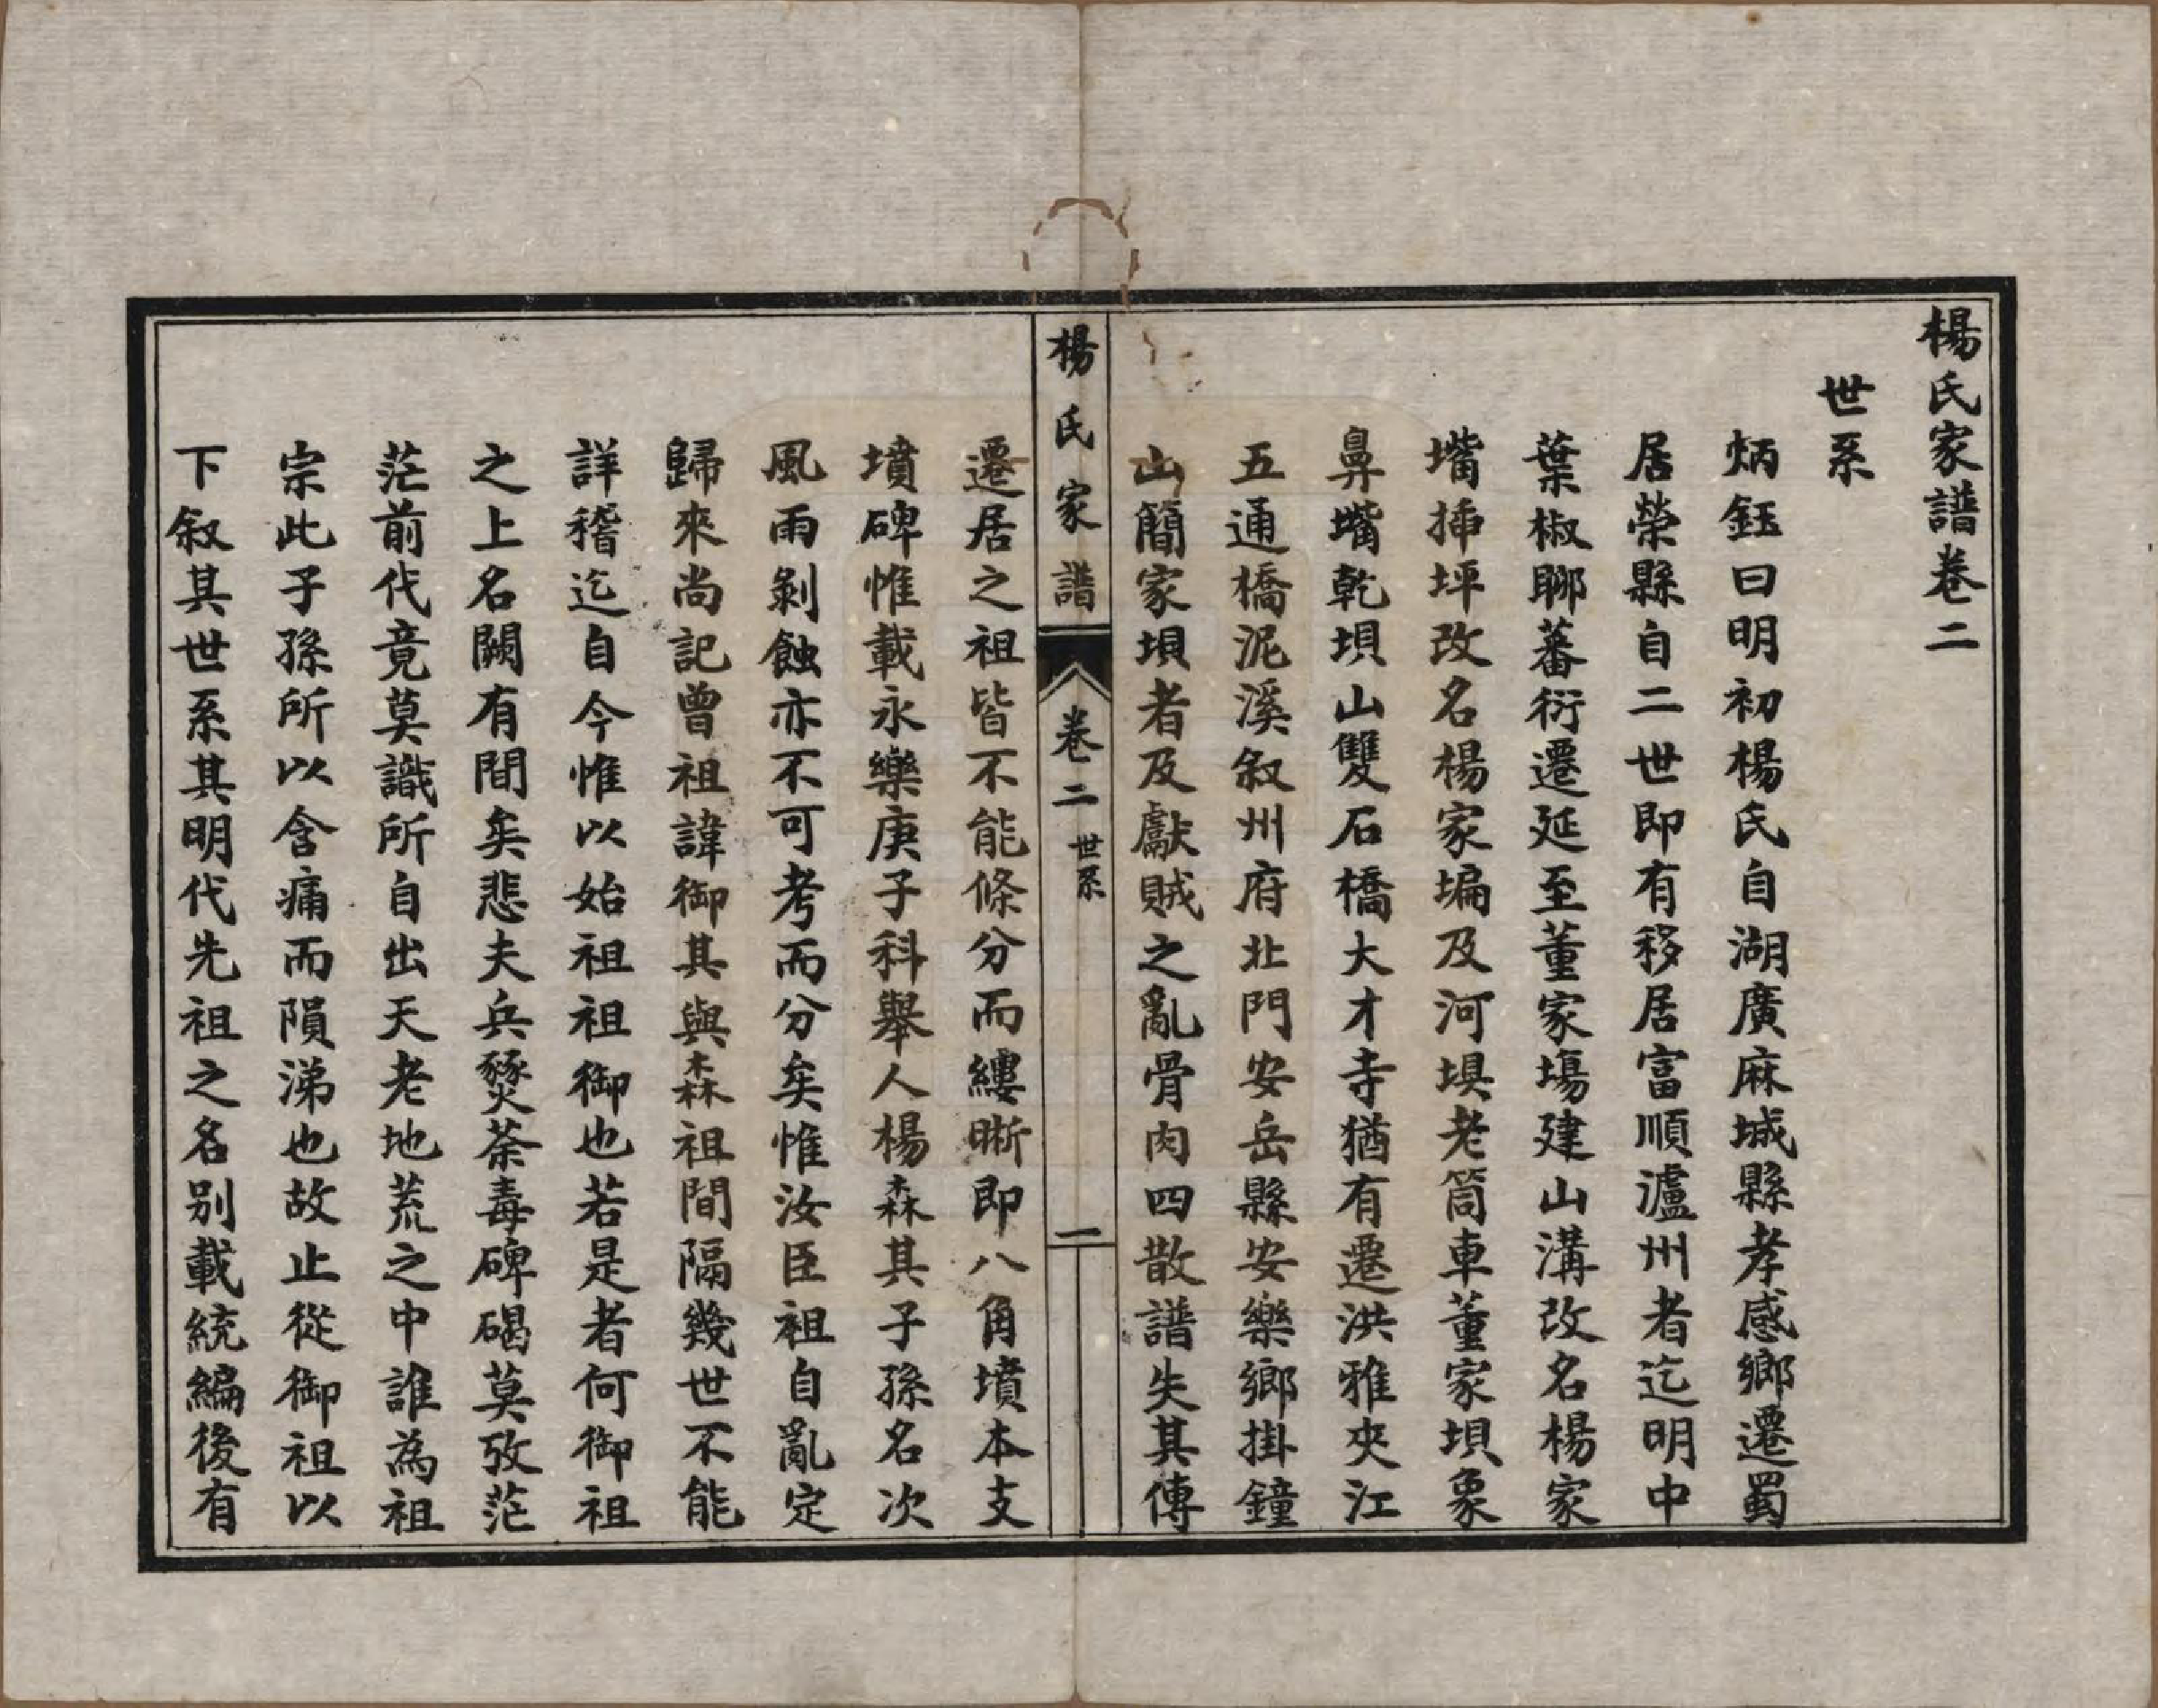 楊氏家譜卷二
世系
炳鈺曰明初楊氏自湖廣麻城縣孝感鄉遷蜀
居榮縣自二世即有移居富順瀘州者迄明中
葉椒聊蕃衍遷延至董家塲建山溝改名楊家
嘴揷坪改名楊家塥及河埧老筒車董家垻象
鼻嘴乾垻山雙石橋大才寺猶有遷洪雅夾江
五通橋泥溪叙州府北門安岳縣安樂鄉掛鐘
山簡家垻者及獻賊之亂骨肉四散譜失其傳
楊氏家譜 卷二 世系 一
遷居之祖皆不能條分而縷晰即八角墳本支
墳碑惟載永樂庚子科舉人楊森其子孫名次
風雨剝蝕亦不可考而分矣惟汝臣祖自亂定
歸來尚記曾祖諱御其與森祖間隔幾世不能
詳稽迄自今惟以始祖祖御也若是者何御祖
之上名闕有間矣悲夫兵燹荼毒碑碣莫攷茫
茫前代竟莫識所自出天老地荒之中誰為祖
宗此子孫所以含痛而隕涕也故止從御祖以
下叙其世系其明代先祖之名別載統編後有